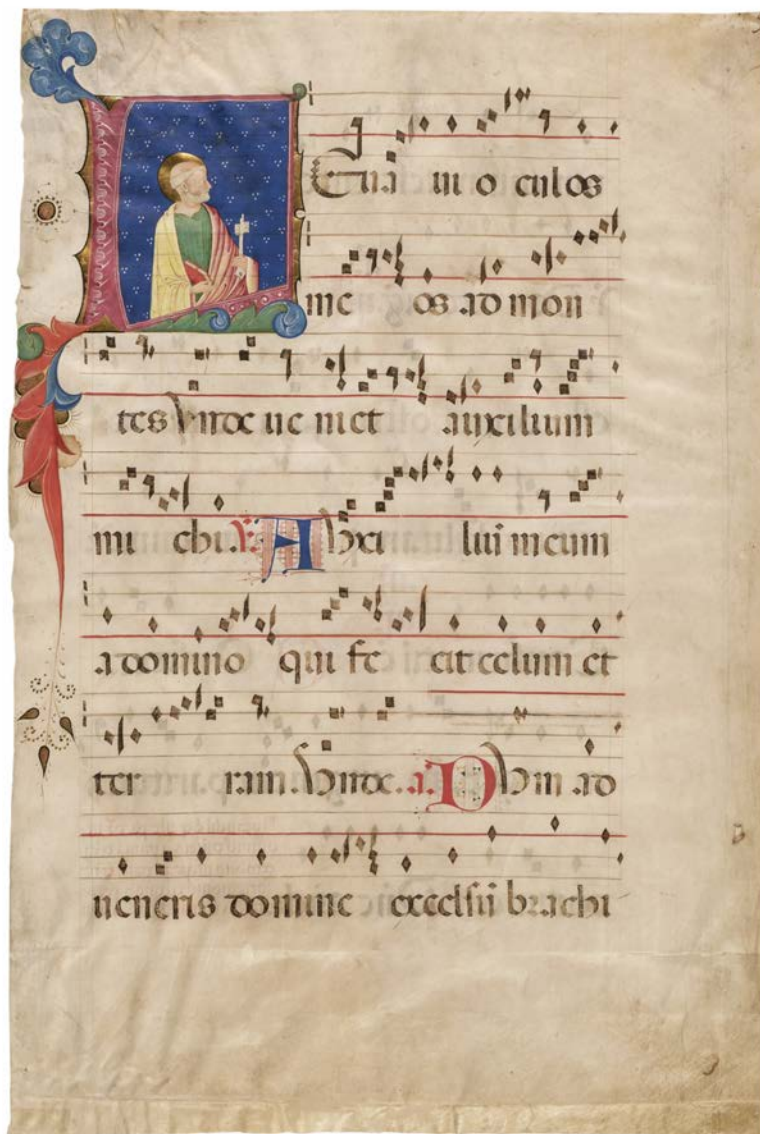 LEua ui o culos
me os ad mon
tes Vnde ue niet auxilium
mi chi. ℣. AVxi liū meum
a domino qui fe cit celum et
ter ram. Vnde. a. DVm ad
ueneris domine excelsū brachi